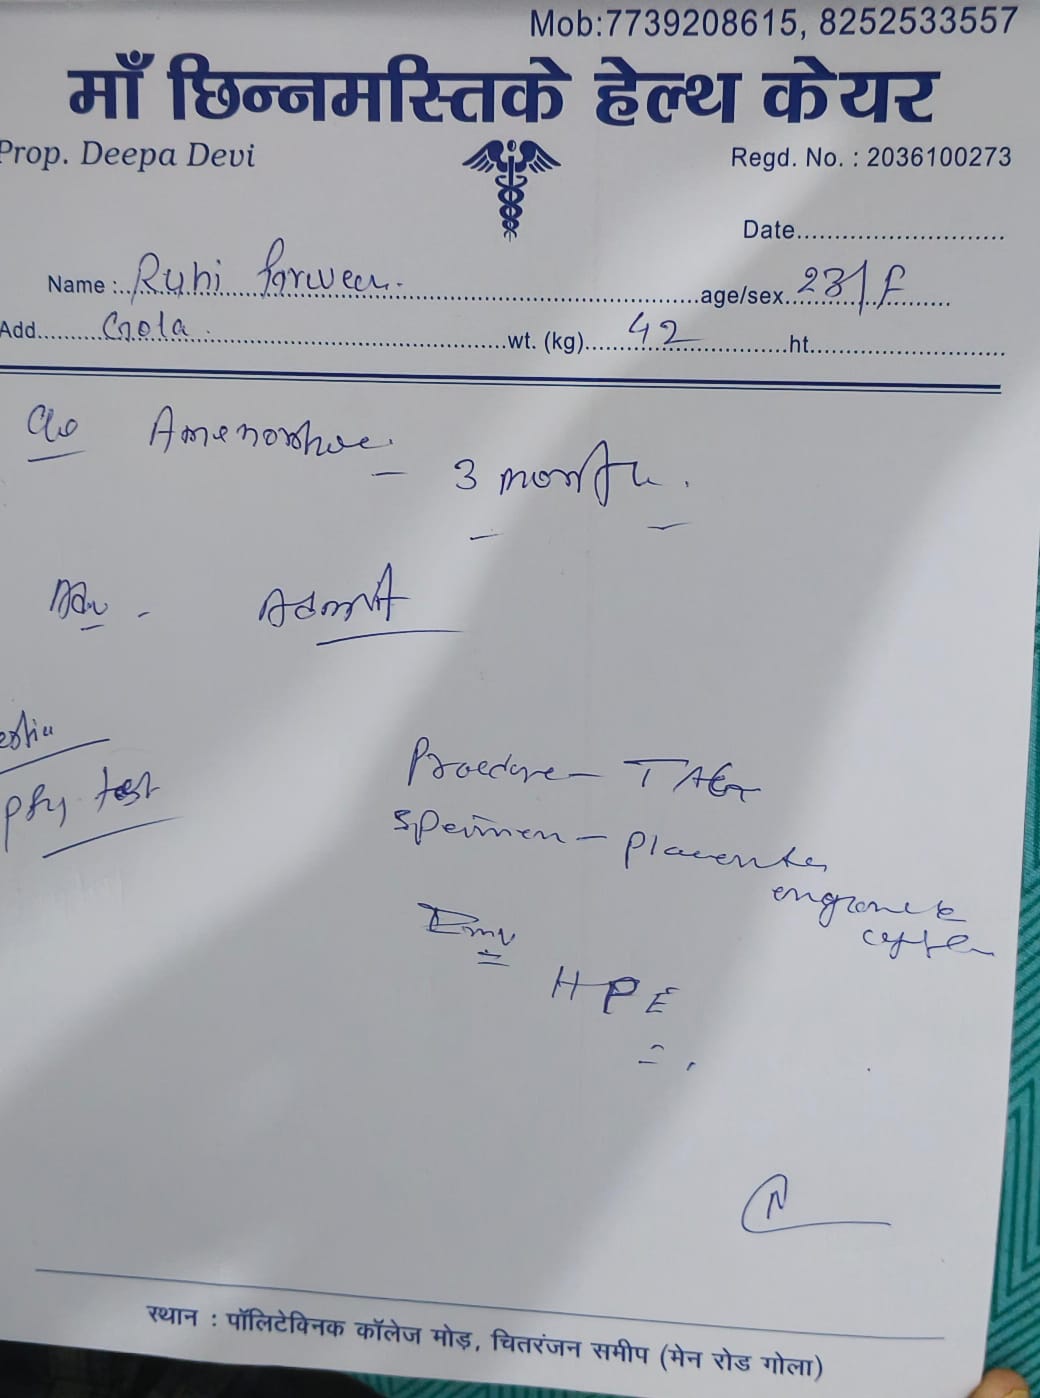 Mob:7739208615, 8252533557
माँ छिन्नमस्तिके हेल्थ केयर
Prop. Deepa Devi
Regd. No. : 2036100273
Date
Name : Ruhi Parween. age/sex 23/F
Add Gola. wt. (kg) 42 ht.
c/o Amenorrhoe - 3 month.
Adv - Admit
test
Procedure - 
Specimen - Placenta
HPE
स्थान : पॉलिटेक्निक कॉलेज मोड़, चितरंजन समीप (मेन रोड गोला)